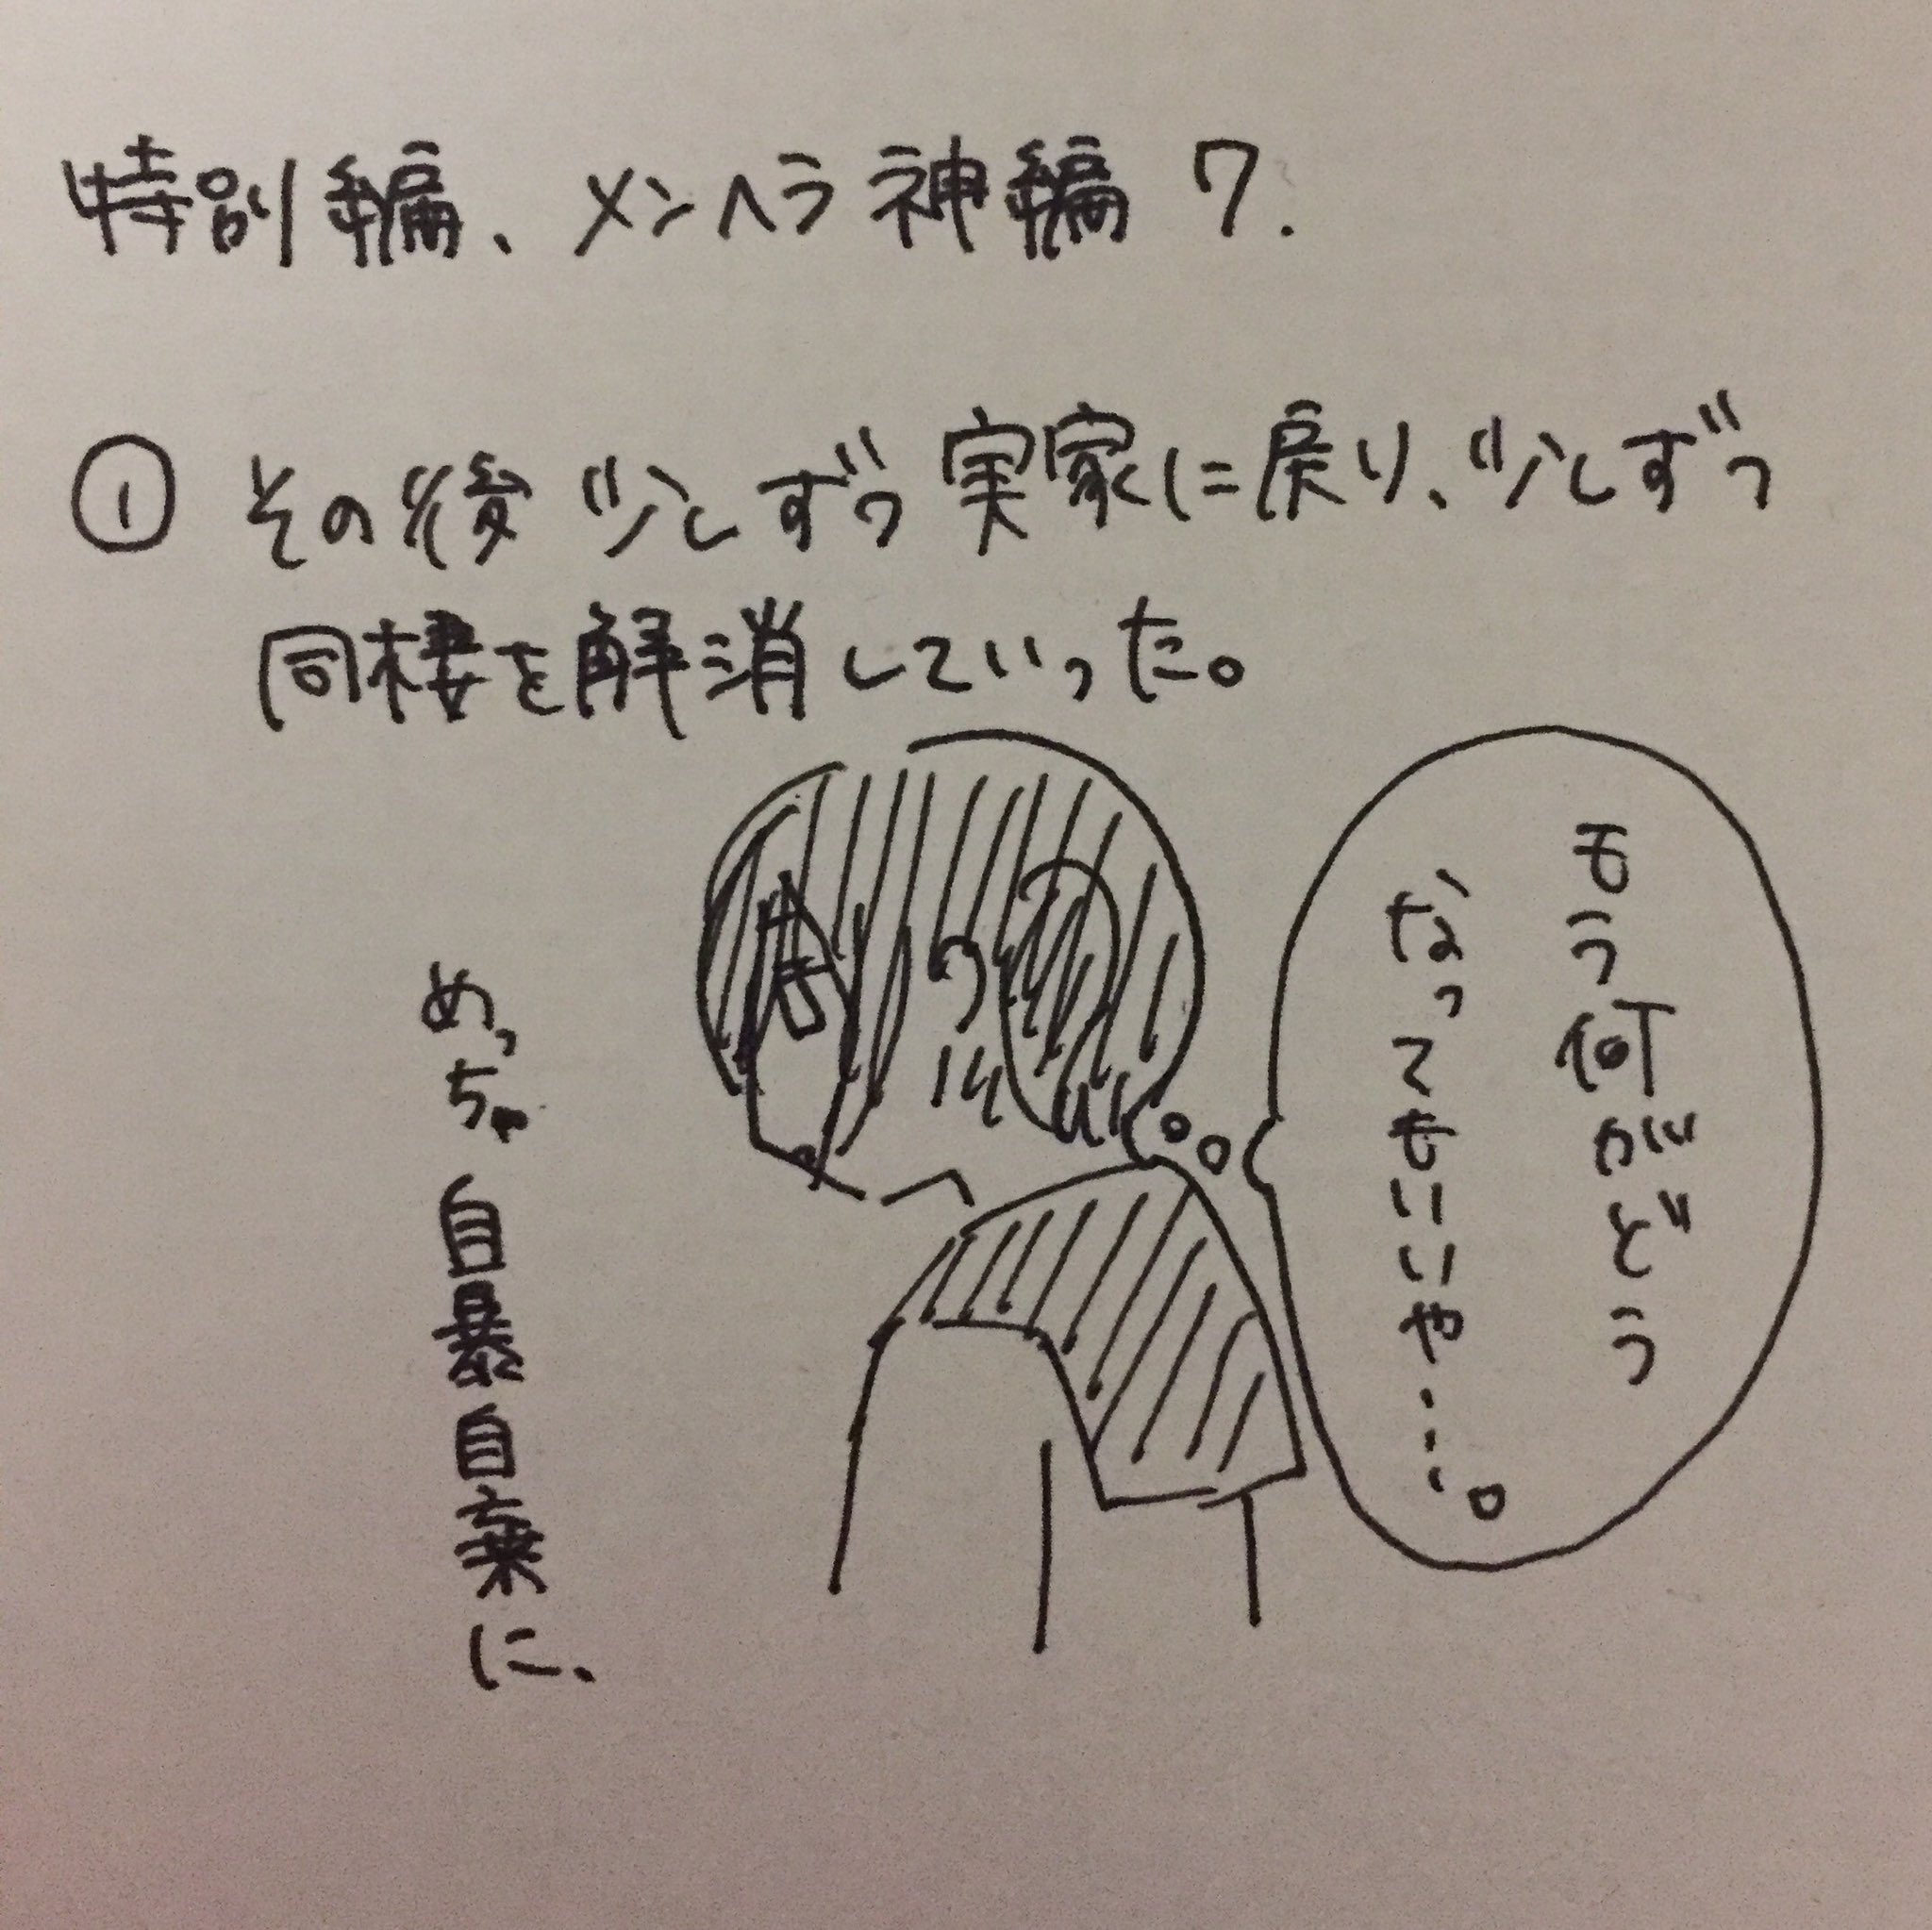 特別編、メンヘラ神編 7.
① その後少しずつ実家に戻り、少しずつ
同棲を解消していった。
もう何がどう
なってもいいや…。
めっちゃ自暴自棄に、